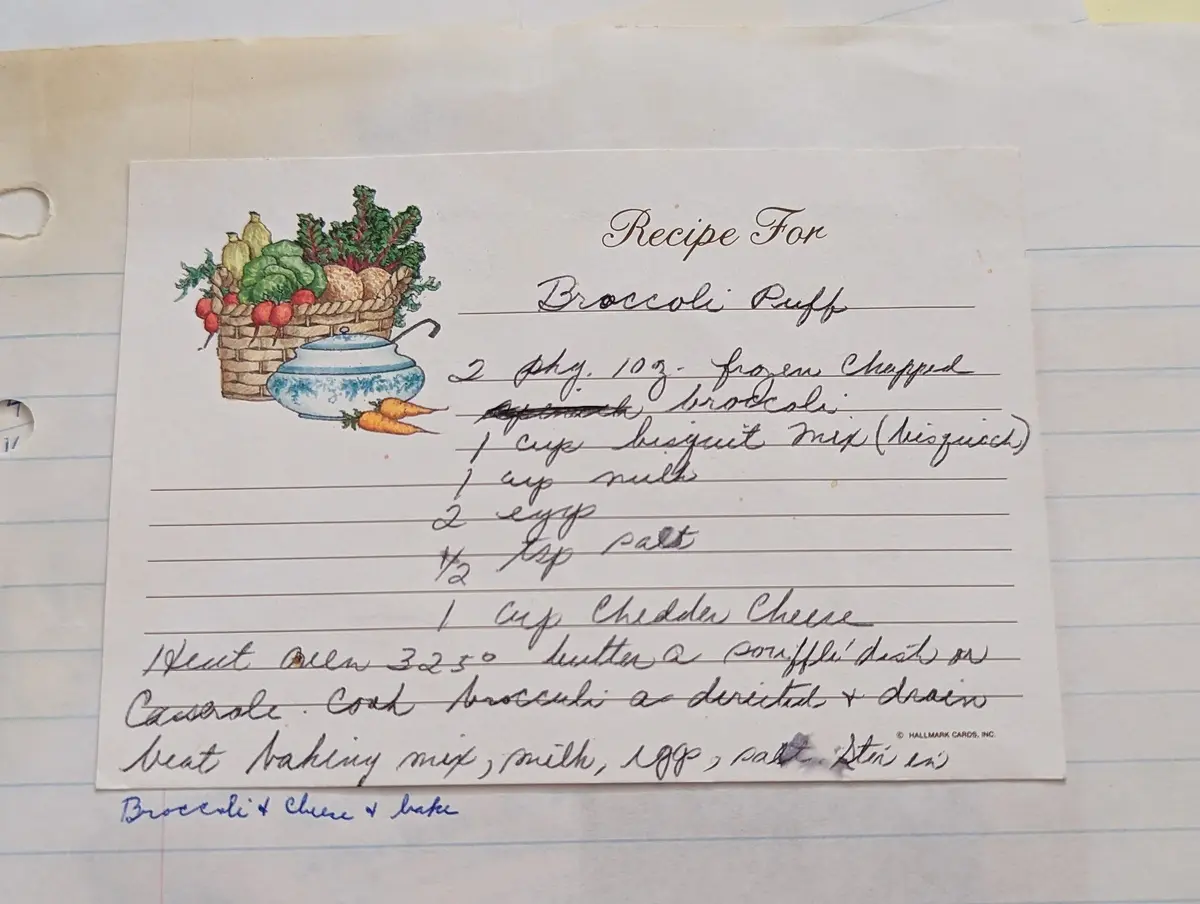 Recipe For
Broccoli Puff
2 pkg. 10 oz. frozen Chopped
broccoli
1 cup bisquit mix (bisquick)
1 cup milk
2 eggs
1/2 tsp salt
1 cup Chedder Cheese
Heat oven 325° butter a soufflé dish or
Casserole. Cook broccoli as directed & drain
© HALLMARK CARDS, INC.
beat baking mix, milk, eggs, salt. Stir in
Broccoli & Cheese & bake